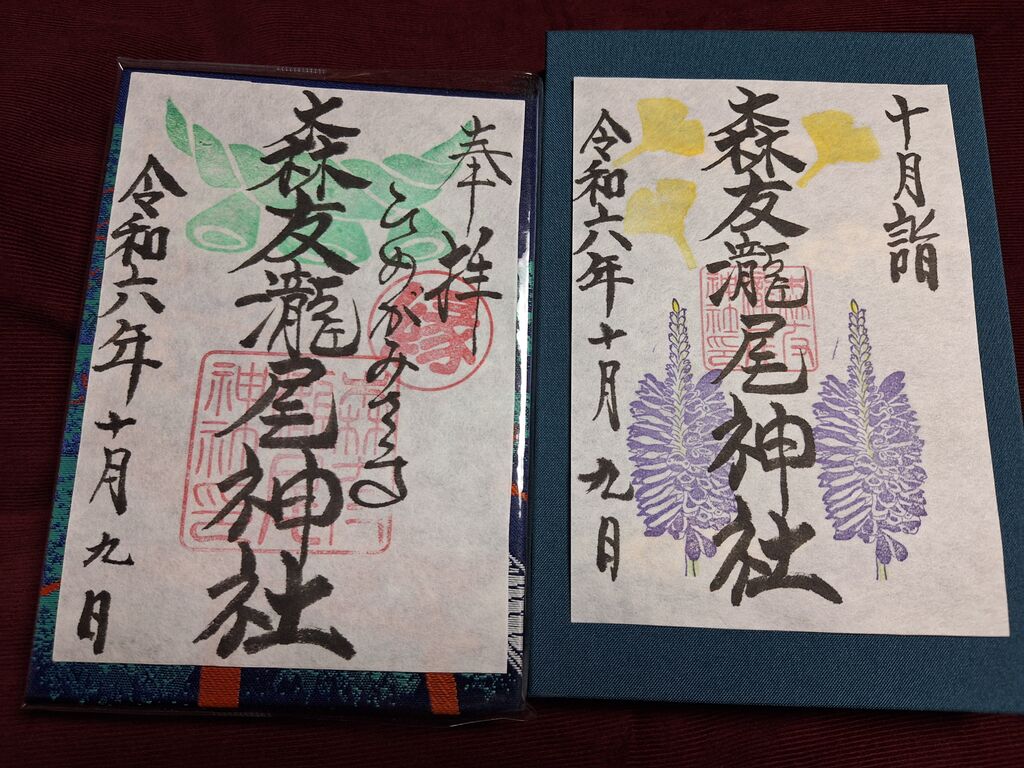 奉拝
縁
森友瀧尾神社
令和六年十月九日
十月詣
森友瀧尾神社
令和六年十月九日